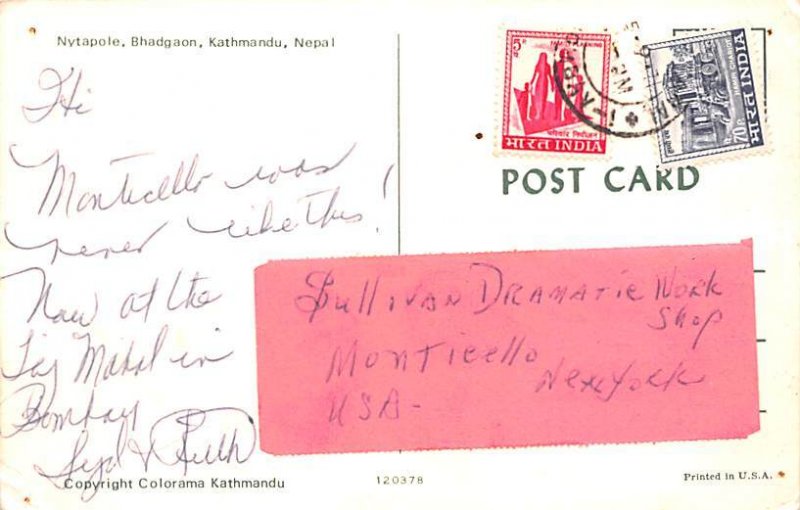 Nytapole, Bhadgaon, Kathmandu, Nepal
Hi
Monticello was
never like this!
Now at the
Taj Mahal in
Bombay
Syd & Ruth
Copyright Colorama Kathmandu
120378
Printed in U.S.A.
5
परिवार नियोजन
भारत INDIA
70
भारत INDIA
POST CARD
Sullivan Dramatic Work
Shop
Monticello
New York
USA-